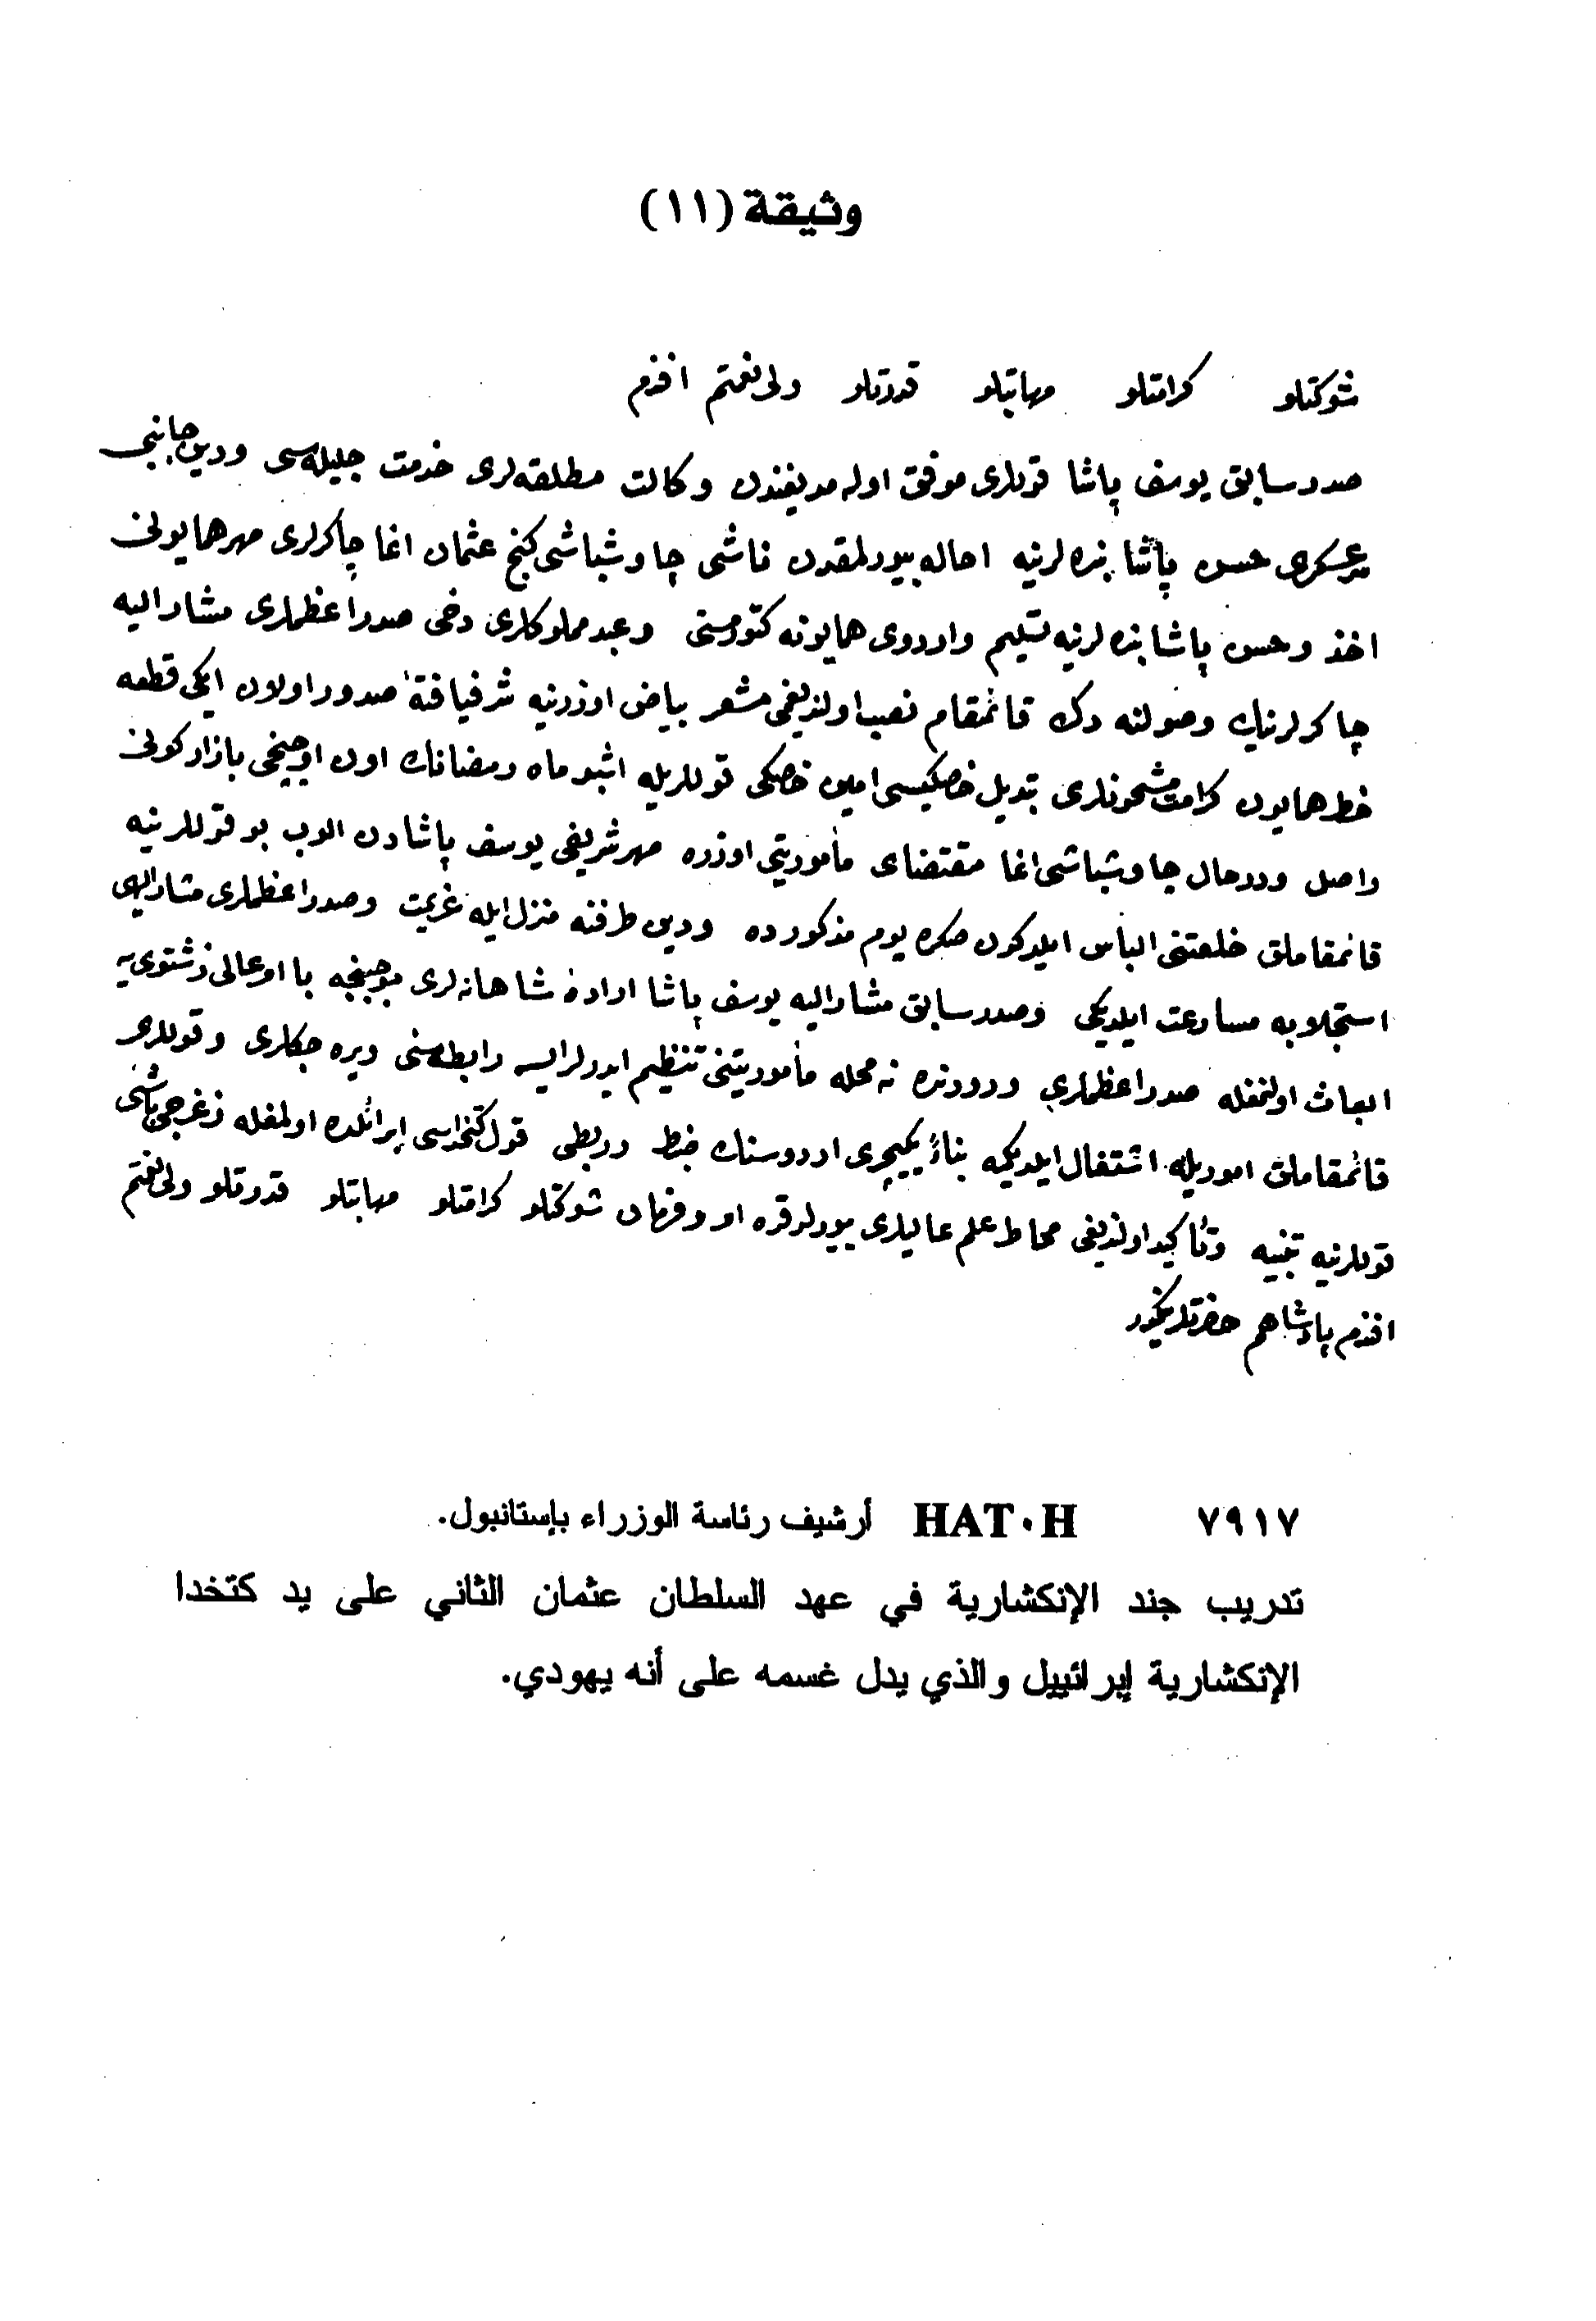 وثيقة (١١)
شوكتلو كرامتلو مهابتلو قدرتلو ولی نعمتم افندم
صدر سابق يوسف پاشا قوللری موفق اوله مديغندن وكالت مطلقه لری خدمت جليله سی ودين جانبی
سرعسكری حسن پاشا بنده لرينه احاله بيورلمقدن ناشی چاوشباشی كنج عثمان اغا چاكرلری مهر همايونی
اخذ وحسن پاشا بنده لرينه تسليم واردوی همايونه كتورمسنی وعبد مملوكلری دخی صدراعظملری مشار اليه
چاكرلرينك وصولنه دك قائمقام نصب اولنديغی مشعر بياض اوزرينه شرفيافتۀ صدور اولان ايكی قطعه
خط همايون كرامت مشحونلری تبديل خصكيسی امين خصكی قوللريله اشبو ماه رمضانك اون اوچنجی بازار كونی
واصل ودرحال چاوشباشی اغا مقتضای مأموريتی اوزره مهر شريفی يوسف پاشادن الوب بو قوللرينه
قائمقاملق خلعتنی الباس ايلدكدن صكره يوم مذكورده ودين طرفنه منزل ايله عزيمت وصدراعظملری مشار اليهی
استجلابه مسارعت ايلديكی وصدر سابق مشار اليه يوسف پاشا ارادۀ شاهانه لری موجبنجه با اوعالی زشتوی يه
ابعاث اولنمغله صدراعظملری ورودنده نه محله مأموريتنی تنظيم ايدرلر ايسه رابطه سنی ويره جكلری وقوللری
قائمقاملق اموريله اشتغال ايلديكمه بناءً يكيچری اردوسنك ضبط وربطی قول كتخداسی ابرائلده اولمغله زغرجی باشی
قوللرينه تنبيه وتأكيد اولنديغی محاط علم عاليلری بيورلدقده امر وفرمان شوكتلو كرامتلو مهابتلو قدرتلو ولی نعمتم
افندم پادشاهم حضرتلرينكدر
٧٩١٧ HAT·H أرشيف رئاسة الوزراء بإستانبول.
تدريب جند الإنكشارية في عهد السلطان عثمان الثاني على يد كتخدا
الإنكشارية إيرائييل والذي يدل غسمه على أنه يهودي.